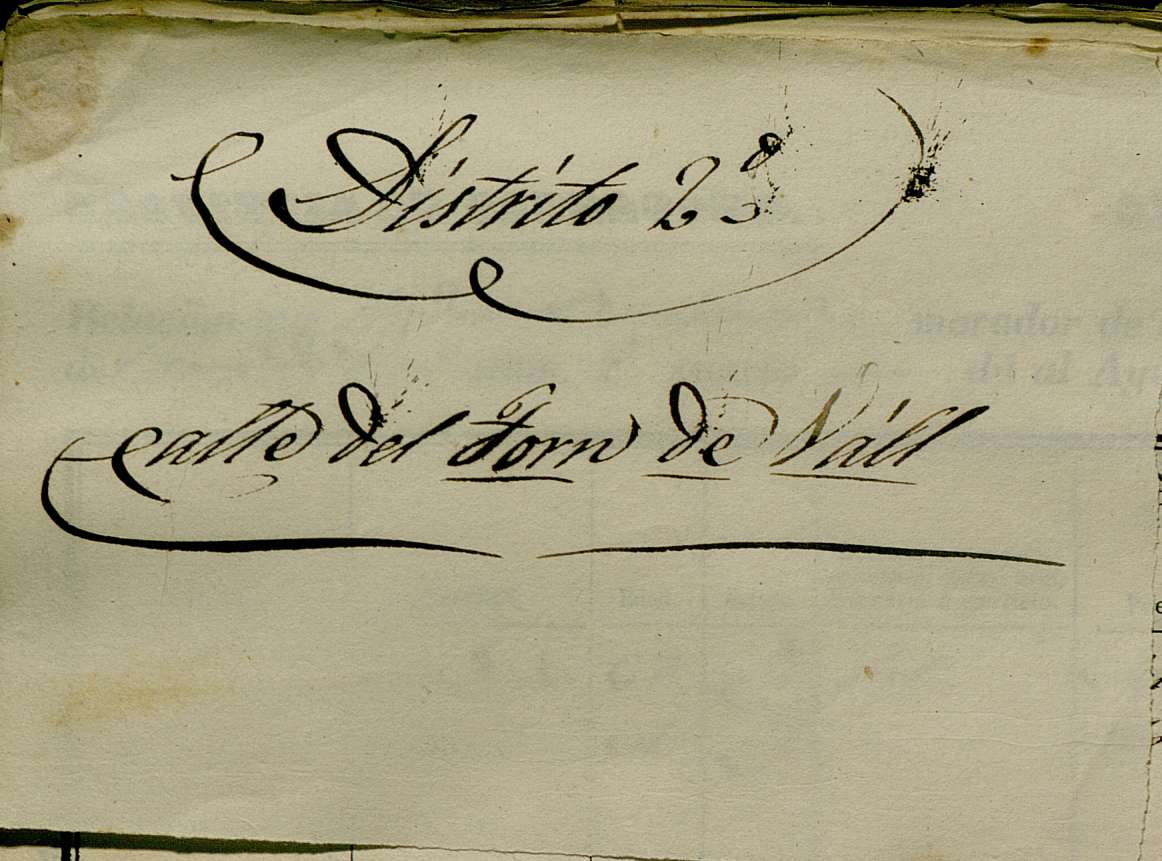 Distrito 2º
Calle del Forn de Váll